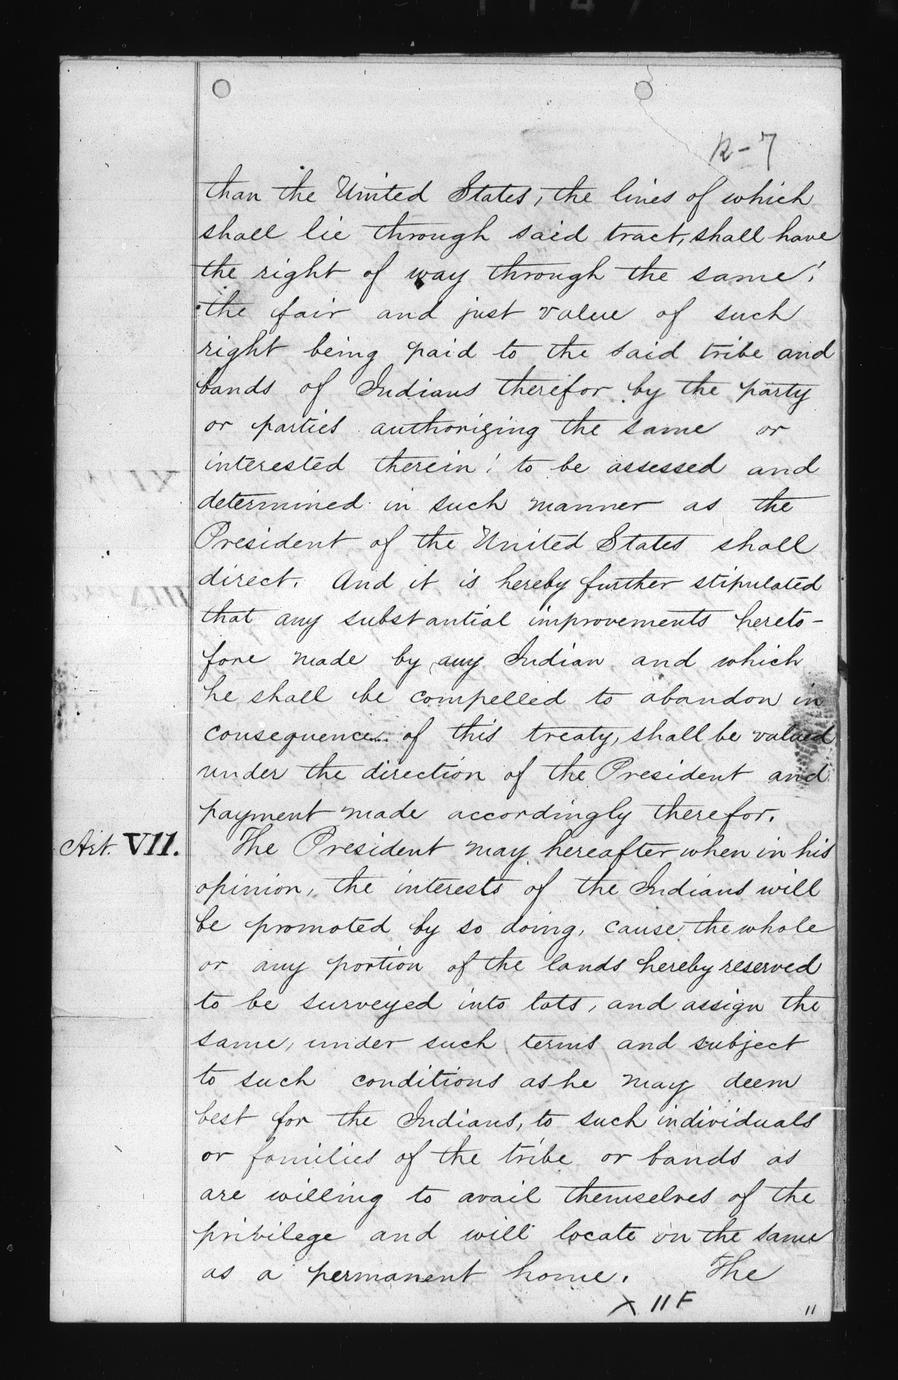 12-7
than the United States, the lines of which
shall lie through said tract, shall have
the right of way through the same;
the fair and just value of such
right being paid to the said tribe and
bands of Indians therefor by the party
or parties authorizing the same or
interested therein; to be assessed and
determined in such manner as the
President of the United States shall
direct. And it is hereby further stipulated
that any substantial improvements hereto-
fore made by any Indian and which
he shall be compelled to abandon in
consequence of this treaty, shall be valued
under the direction of the President and
payment made accordingly therefor.
Art. VII. The President may hereafter when in his
opinion, the interests of the Indians will
be promoted by so doing, cause the whole
or any portion of the lands hereby reserved
to be surveyed into lots, and assign the
same, under such terms and subject
to such conditions as he may deem
best for the Indians, to such individuals
or families of the tribe or bands as
are willing to avail themselves of the
privilege and will locate on the same
as a permanent home. The
X 11 F
11